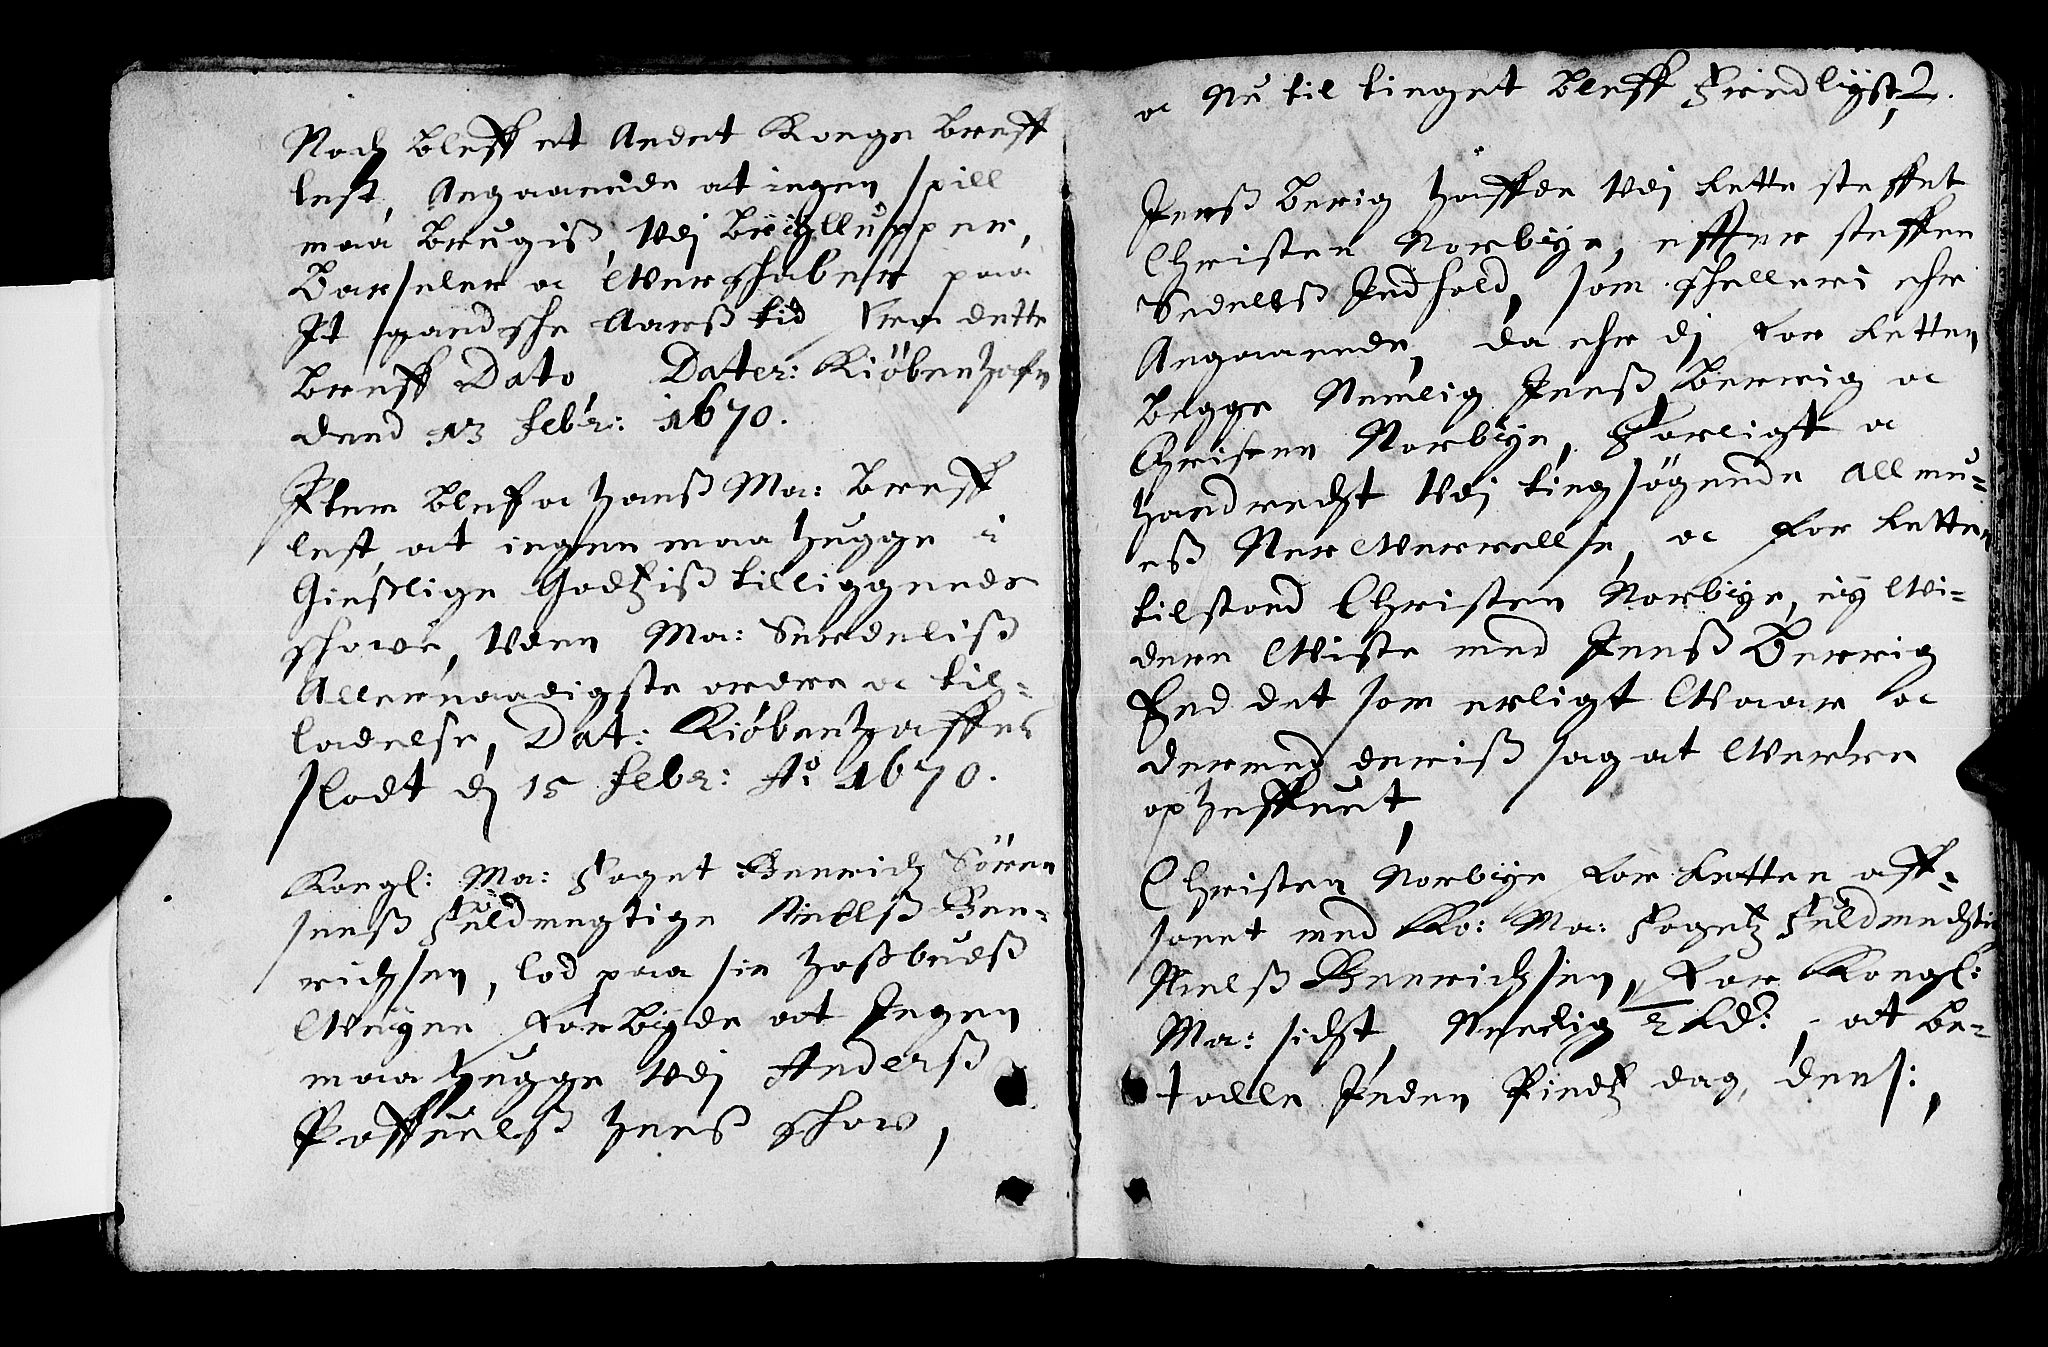 Noch bleff et Andet Konge breff
lest, Angaaende at ingen spill
maa brugiß, Vdj bröÿllupper,
Barseler oc Werschaber paa
It gandsche Aarß tid fra dette
breff Dato, Dater: Kiöbenhafn
dend 13 febr: 1670.
Item blef oc hanß Ma: breff
lest, at ingen maa hugge i
Giestlige Godtziß tilliggende
schowe, Vden Ma: Serdeliß
Allernaadigste ordre oc til-
ladelse, Dat: Kiöbenhaffns
slodt dj 15 febr: Ao 1670.
Kongl: Ma: foget Henrich Sören
senß fuldmegtige Nielß Hen-
richsen, lod paa sin hoßbundß
Weigne forbÿde at Ingen
maa hugge Vdj Anderß
Poffuelß henß schow,
oc Nu til tinget bleff friedlÿst,
Jenß berig haffde Vdj Rette steffnet
Christen Norbÿe, effter steffne
Sedelß Indhold, som schelleri ehr
Angaaende, da ehr dj for Retten
begge Nemlig Jenß berrig oc
Christen Norbÿe, forligt oc
handrecht Vdj tingsögende Allmu-
eß Nerwerrellse, oc for Retten
tilstoed Christen Norbÿe, eÿ Wi-
dere Wiste med Jenß Berrig
End det som erligt Waar oc
dermed deriß sag at Werre
opheffuet,
Christen Norbÿe for Retten aff-
sonet med Ko: Ma: fogetz fuldmechtig
Nielß Henrichsen, for Kongl:
Ma: sicht, Nemlig 2 Rd: at be-
talle Inden Pindtz dag, dens:,